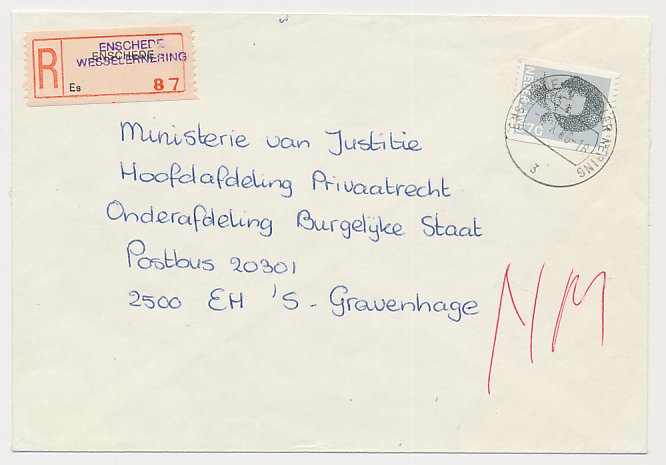 ENSCHEDE
ENSCHEDE
WESSELERNERING
R
Es
87
Ministerie van Justitie
Hoofdafdeling Privaatrecht
Onderafdeling Burgelijke Staat
Postbus 20301
2500 EH 'S-Gravenhage
NERING
3